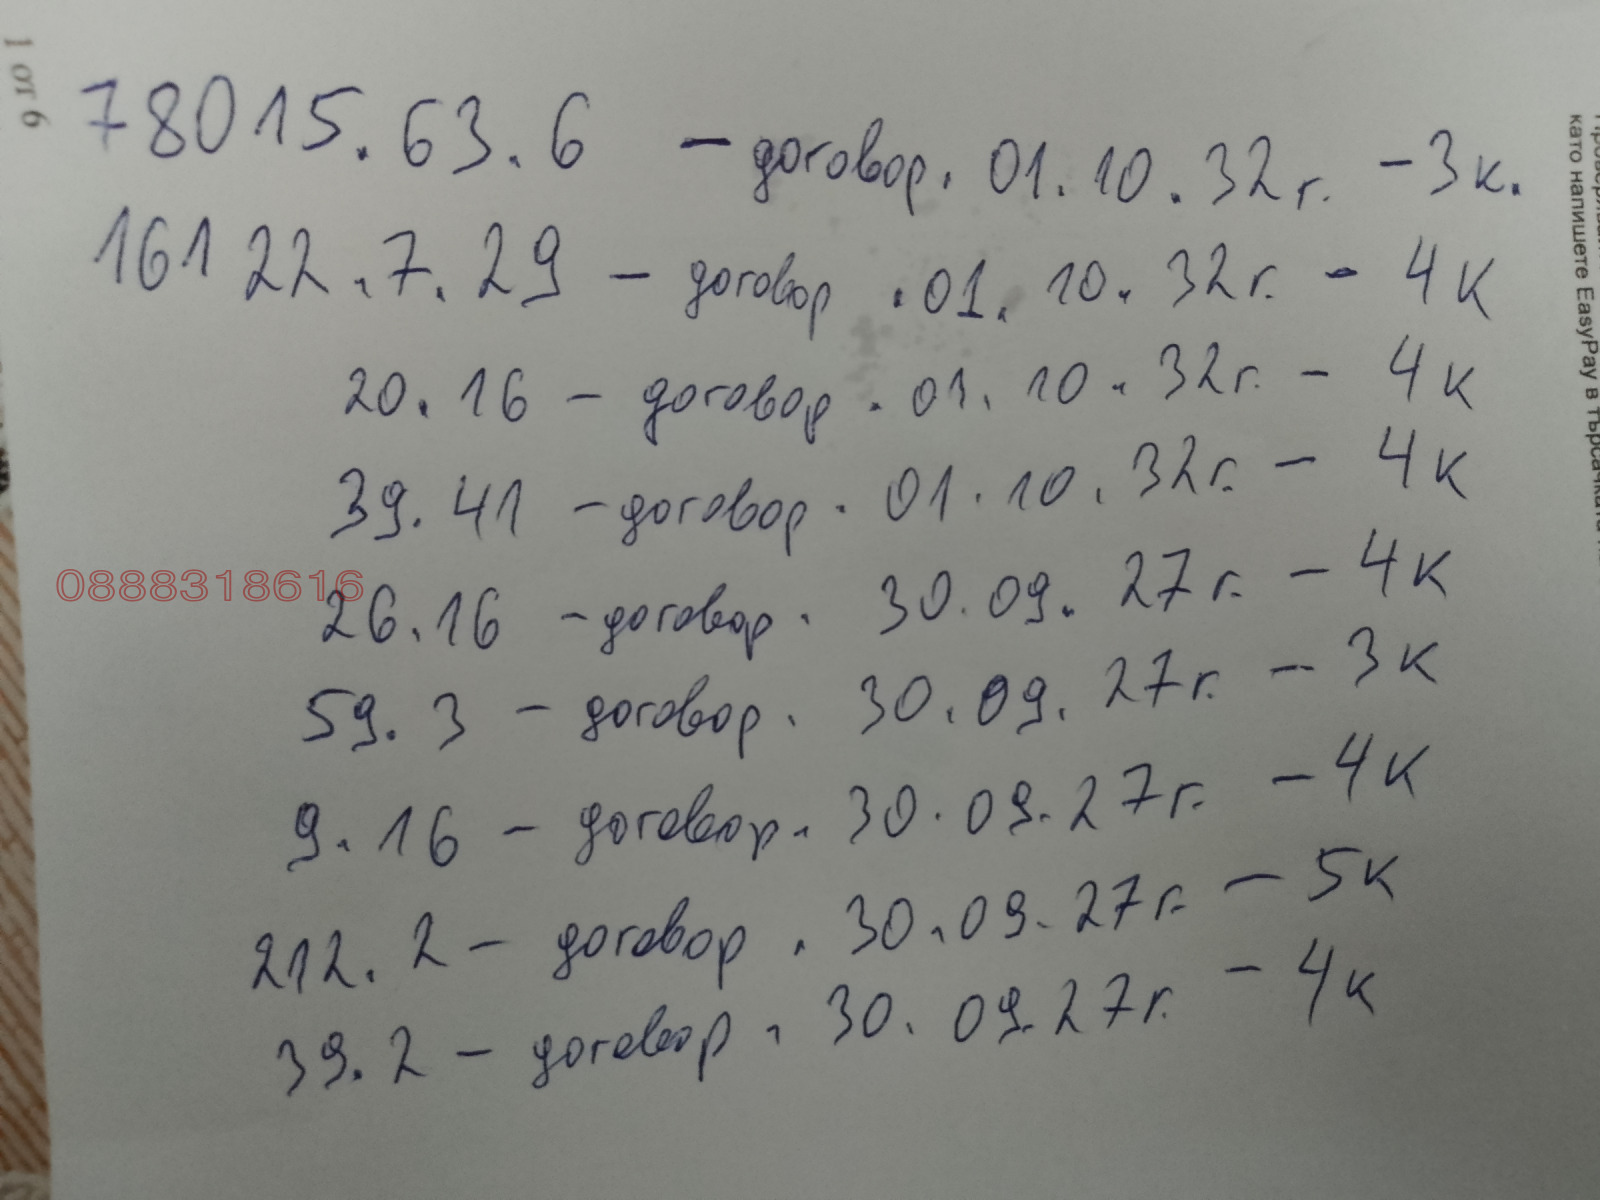 1 от 6
78015.63.6 - договор. 01.10.32г. - 3к.
16122.7.29 - договор .01.10.32г. - 4к
20.16 - договор. 01.10.32г. - 4к
39.41 - договор. 01.10.32г. - 4к
0888318616
26.16 - договор. 30.09.27г. - 4к
59.3 - договор. 30.09.27г. - 3к
9.16 - договор. 30.09.27г. - 4к
212.2 - договор. 30.09.27г. - 5к
39.2 - договор. 30.09.27г. - 4к
като напишете EasyPay в търсачката